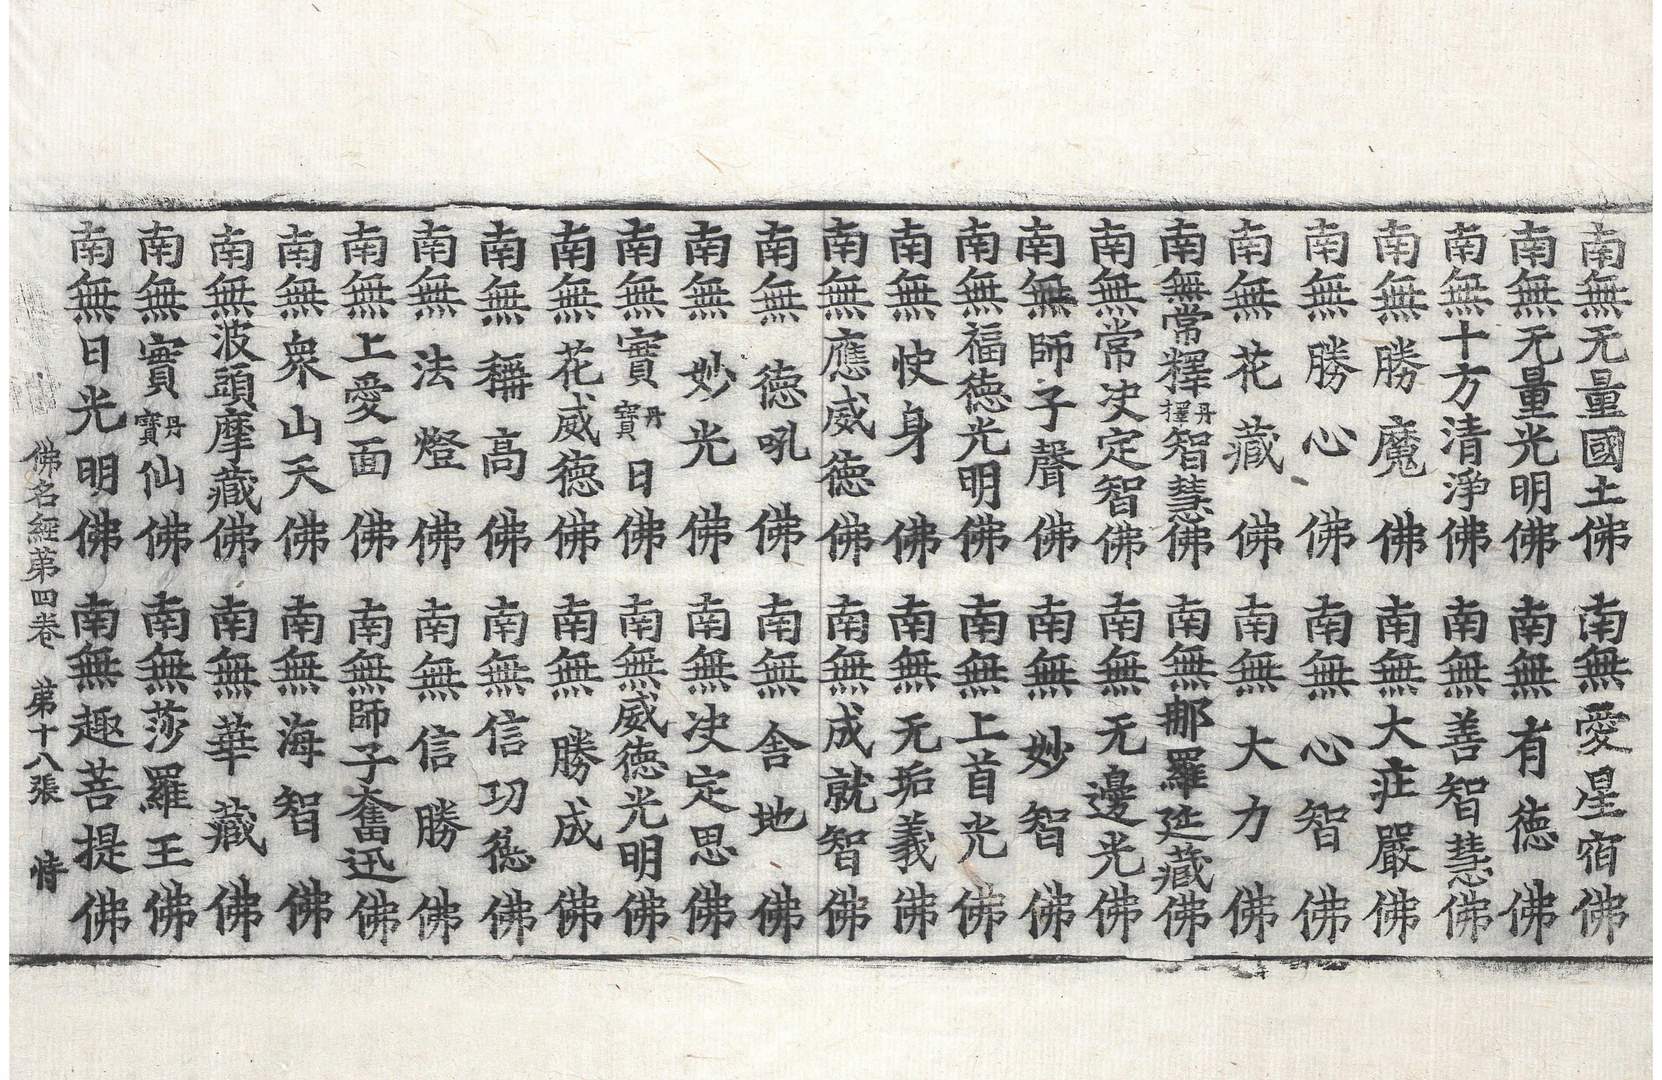 南無无量國土佛 南無愛星宿佛
南無无量光明佛 南無有德佛
南無十方清淨佛 南無善智慧佛
南無勝魔佛 南無大莊嚴佛
南無勝心佛 南無心智佛
南無花藏佛 南無大力佛
南無常釋丹擇智慧佛 南無那羅延藏佛
南無常決定智佛 南無无邊光佛
南無師子聲佛 南無妙智佛
南無福德光明佛 南無上首光佛
南無快身佛 南無无垢義佛
南無應威德佛 南無成就智佛
南無德吼佛 南無舍地佛
南無妙光佛 南無決定思佛
南無實丹寶日佛 南無威德光明佛
南無花威德佛 南無勝成佛
南無稱高佛 南無信功德佛
南無法燈佛 南無信勝佛
南無上愛面佛 南無師子奮迅佛
南無衆山天佛 南無海智佛
南無波頭摩藏佛 南無華藏佛
南無實丹寶仙佛 南無莎羅王佛
南無日光明佛 南無趣菩提佛
佛名經第四卷 第十八張 恃